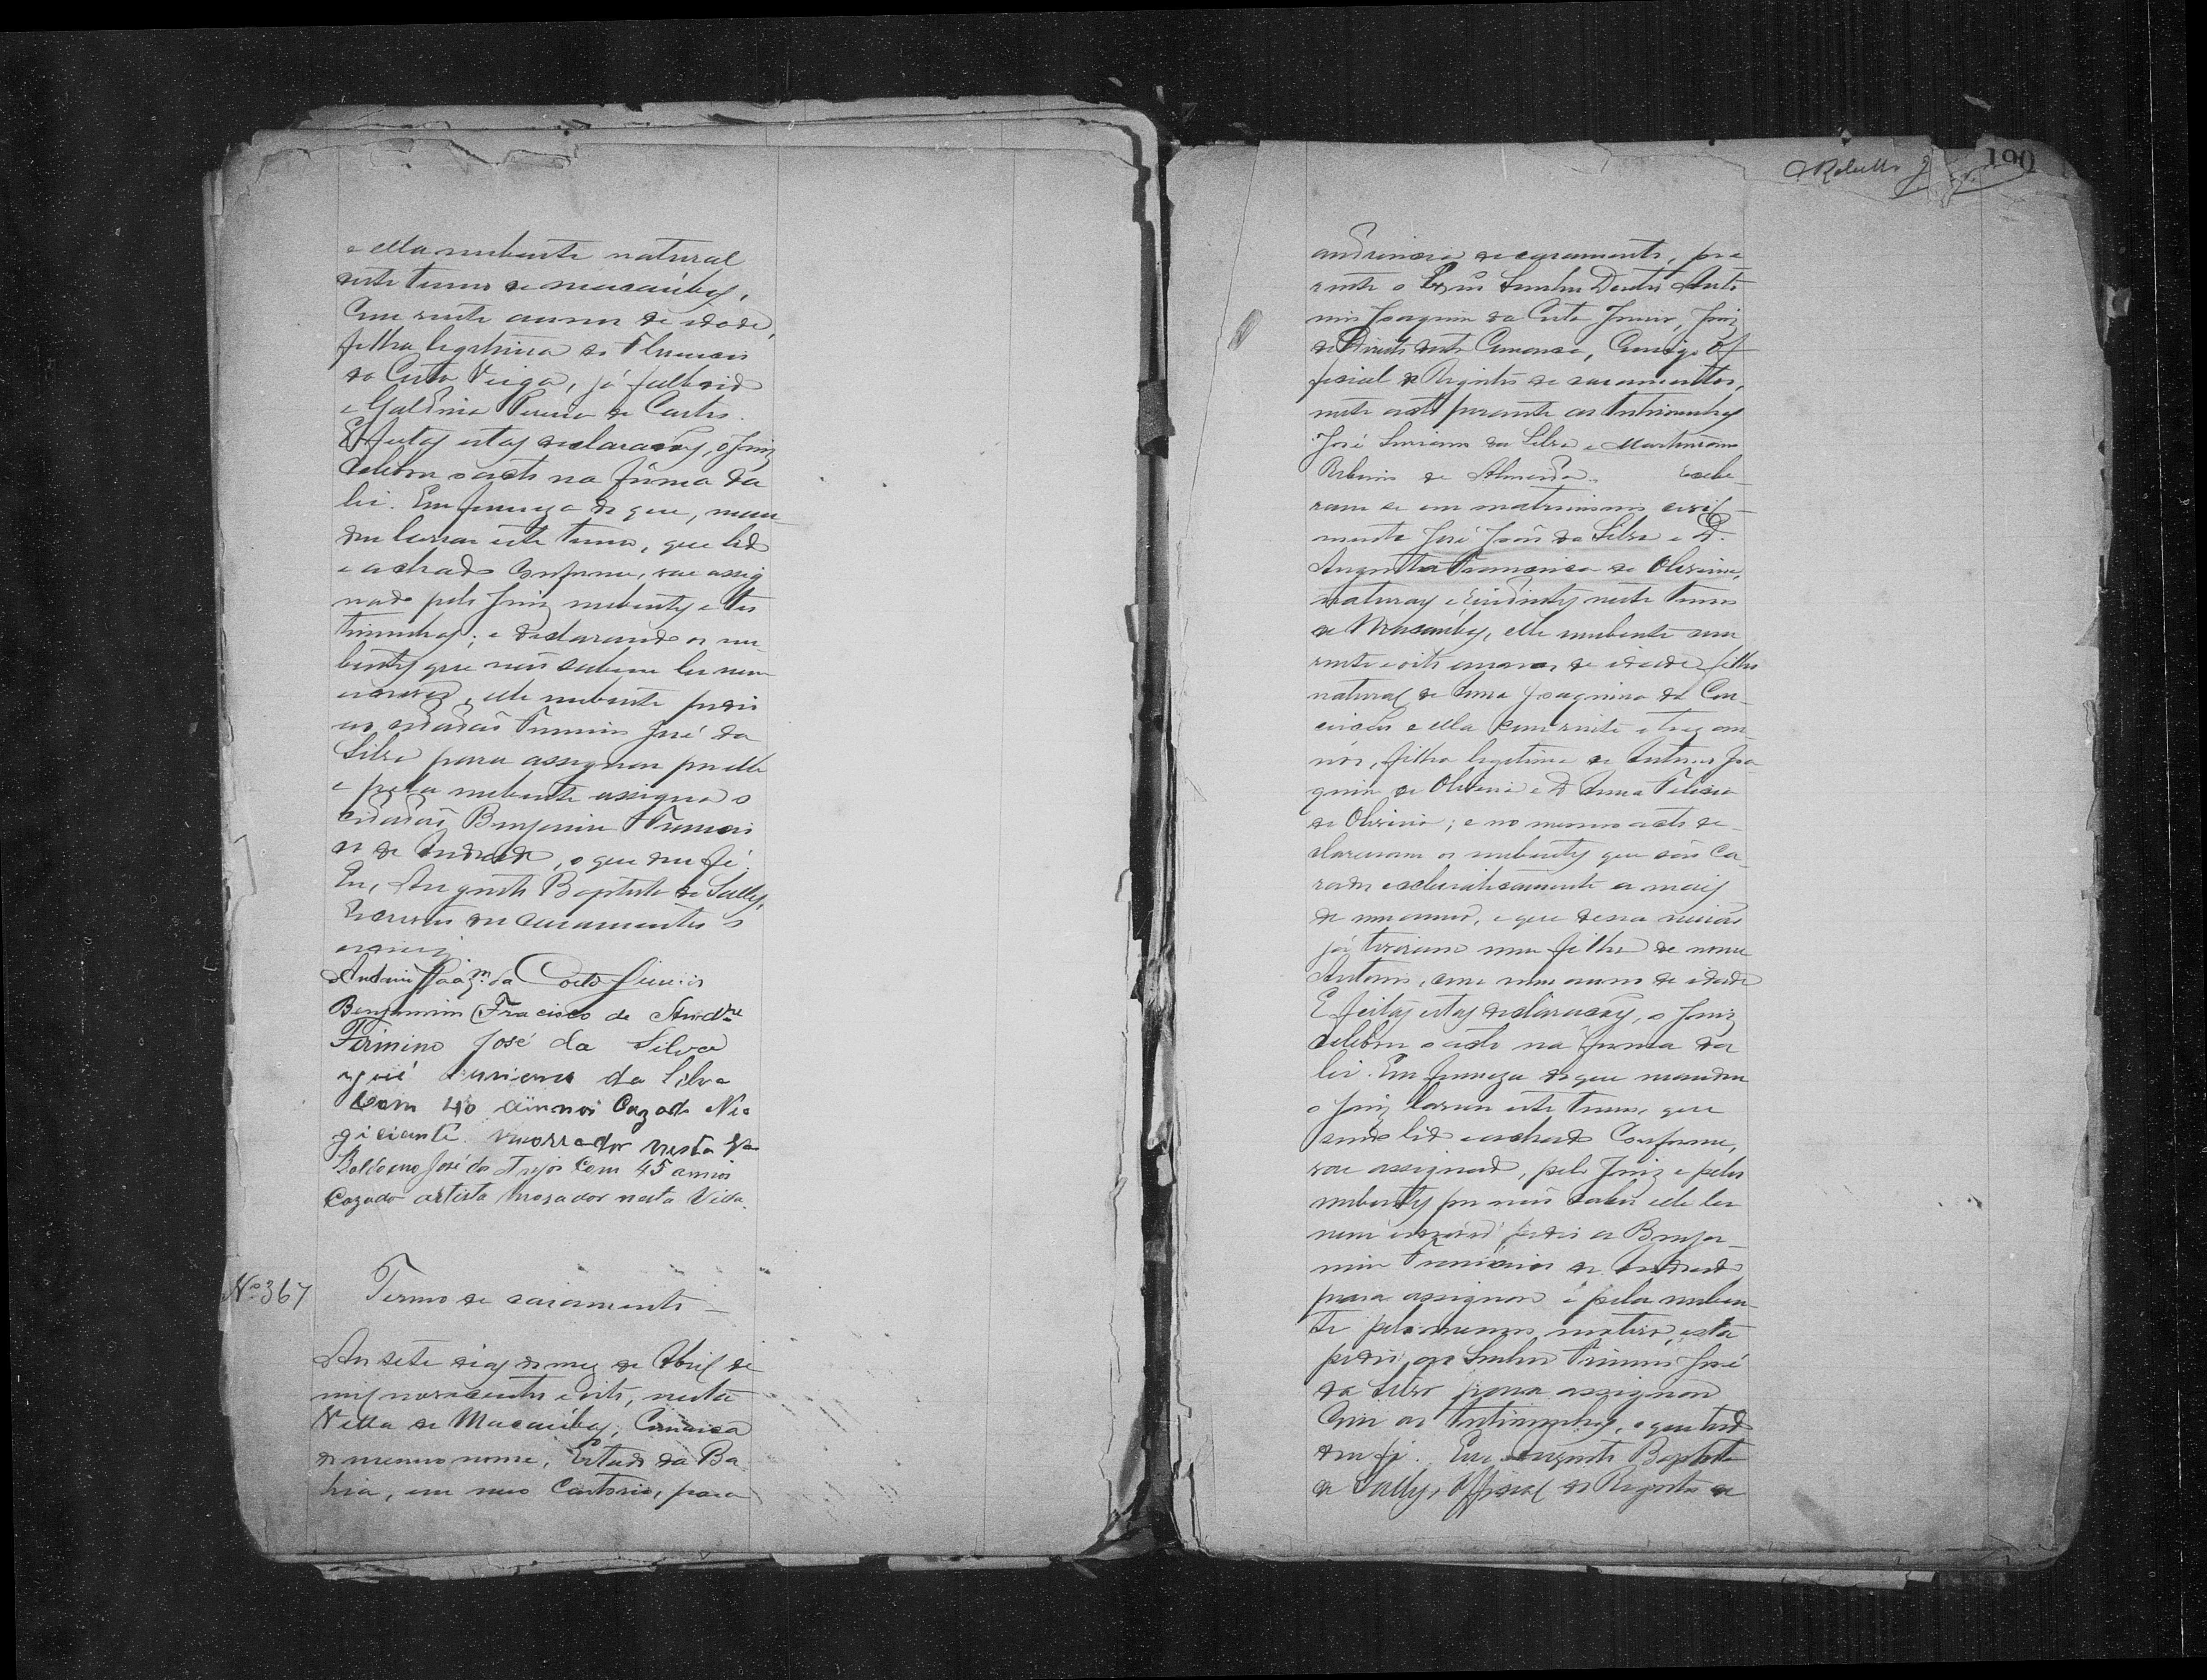 e ella nubente natural
deste Termo de Macaúbas,
com vinte annos de idade,
filha legitima de
da Costa Veiga, já fallecido
e Galdina Pereira de Castro.
E feitas estas declarações, o Juiz
celebrou o acto na fórma da
lei. Em firmeza do que, man-
dou lavrar este termo, que lido
e achado conforme, vae assig
nado pelo Juiz nubentes e tes
timunhas; e declarando os nu-
bentes que não sabem ler nem
escrever, elle nubente pediu
ao cidadão Firmino José da
Silva para assignar por elle
e pela nubente assigna o
cidadão Benjamin Francis
co de Andrade, o que dou fé.
Eu, Augusto Baptista de Salles,
Escrivão de casamentos o
escrevi
Antonio Joaqm. da Costa Junior
Benjamim Fracisco de Andre
Firmino José da Silva
José Luriano da Silva
Com 40 annos Cazado Ne
giciante morrador nesta Va
José dos Com 45 annos
Cazado artista morador nesta Vida.
No 367
Termo de casamento
Aos sete dias do mez de Abril de
mil novecentos e oito, nesta
Villa de Macaúbas, Comarca
do mesmo nome, Estado da Ba
hia, em meo Cartorio, para
190
audiencia de casamento, pre
sente o Senhor Doutor Anto
nio Joaquim da Costa Junior, Juiz
de Direito desta Comarca, Comigo Of
ficial do Registro de casamentos,
neste acto perante as testimunhas
José Luriano da Silva e
de Almeida recebe-
ram-se em matrimonio civil-
mente José João da Silva e D.
Augusta Francisca de Oliveira,
naturaes e rezidentes neste Termo
de Macaúbas, elle nubente com
vinte e oito annos de idade, filho
natural de Anna Joaquina da Con-
ceição e ella com vinte e tres an-
nos, filha legitima de Antonio Joa
quim de Oliveira e D Anna
de Oliveira; e no mesmo acto de-
clararam os nubentes que são ca-
sados ecclesiasticamente a mais
de um anno, e que dessa união
já tiveram um filho de nome
Antonio, com um anno de idade
E feitas estas declarações, o Juiz
celebrou o acto na fórma da
lei. Em firmeza do que mandou
o Juiz lavrar este termo, que
sendo lido e achado Conforme,
vae assignado, pelo Juiz e pelos
nubentes por não saber elle ler
nem escrever pediu a Benja-
min Francisco de Andrade
para assignar e pela nuben-
te pelo mesmo motivo, esta
pediu ao Senhor Firmino José
da Silva para assignar
Com as testimunhas, o que tudo
dou fé. Eu Augusto Baptista
de Salles, Official do Registro de